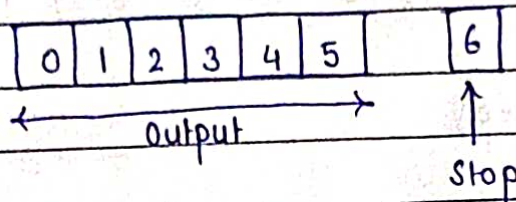 0 1 2 3 4 5 6
output
Stop